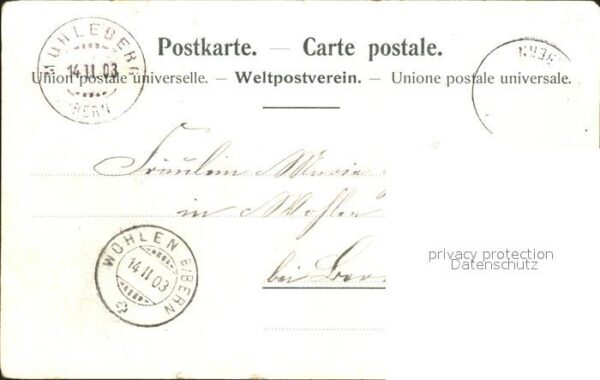 MÜHLEBERG
14.II.03
(BERN)
Postkarte. — Carte postale.
Union postale universelle. — Weltpostverein. — Unione postale universale.
BERN
Fräulein Marie
in Wohlen
bei Bern
WOHLEN B/BERN
14.II.03
privacy protection
Datenschutz